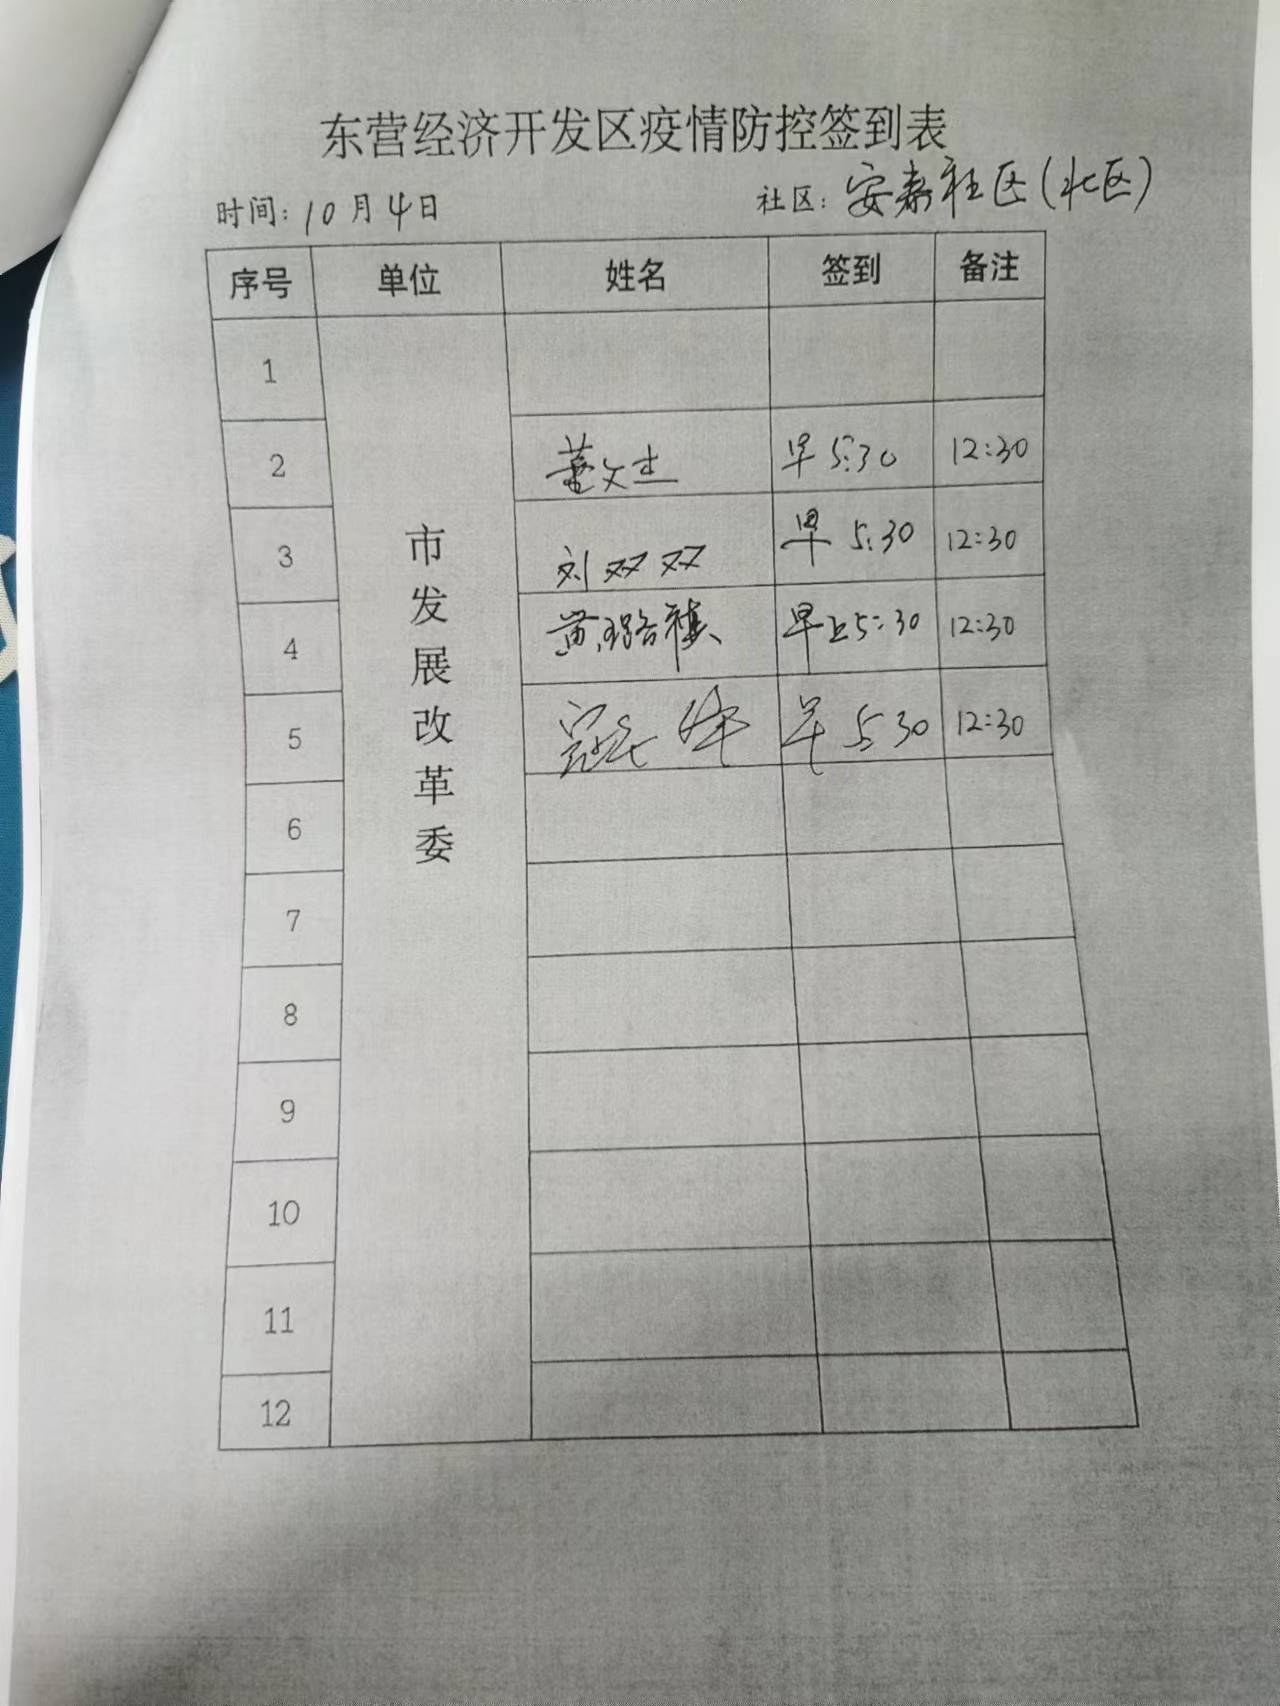 东营经济开发区疫情防控签到表
时间：10月4日 社区：安泰社区(北区)
序号 单位 姓名 签到 备注
市发展改革委
1
2 董文杰 早5:30 12:30
3 刘双双 早 5:30 12:30
4 黄璐祺 早上5:30 12:30
5 早 5:30 12:30
6
7
8
9
10
11
12